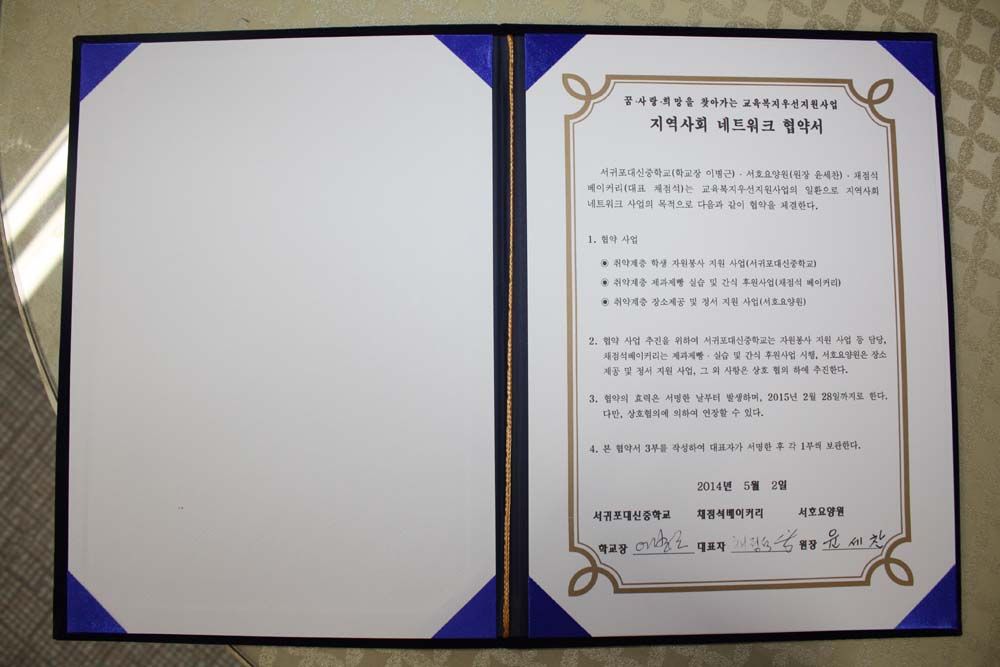 꿈·사랑·희망을 찾아가는 교육복지우선지원사업
지역사회 네트워크 협약서
서귀포대신중학교(학교장 이병근)·서호요양원(원장 윤세찬)·채점석
베이커리(대표 채점석)는 교육복지우선지원사업의 일환으로 지역사회
네트워크 사업의 목적으로 다음과 같이 협약을 체결한다.
1. 협약 사업
◉ 취약계층 학생 자원봉사 지원 사업(서귀포대신중학교)
◉ 취약계층 제과제빵 실습 및 간식 후원사업(채점석 베이커리)
◉ 취약계층 장소제공 및 정서 지원 사업(서호요양원)
2. 협약 사업 추진을 위하여 서귀포대신중학교는 자원봉사 지원 사업 등 담당,
채점석베이커리는 제과제빵·실습 및 간식 후원사업 시행, 서호요양원은 장소
제공 및 정서 지원 사업, 그 외 사항은 상호 협의 하에 추진한다.
3. 협약의 효력은 서명한 날부터 발생하며, 2015년 2월 28일까지로 한다.
다만, 상호협의에 의하여 연장할 수 있다.
4. 본 협약서 3부를 작성하여 대표자가 서명한 후 각 1부씩 보관한다.
2014년 5월 2일
서귀포대신중학교 채점석베이커리 서호요양원
학교장 대표자 채점석 원장 윤세찬